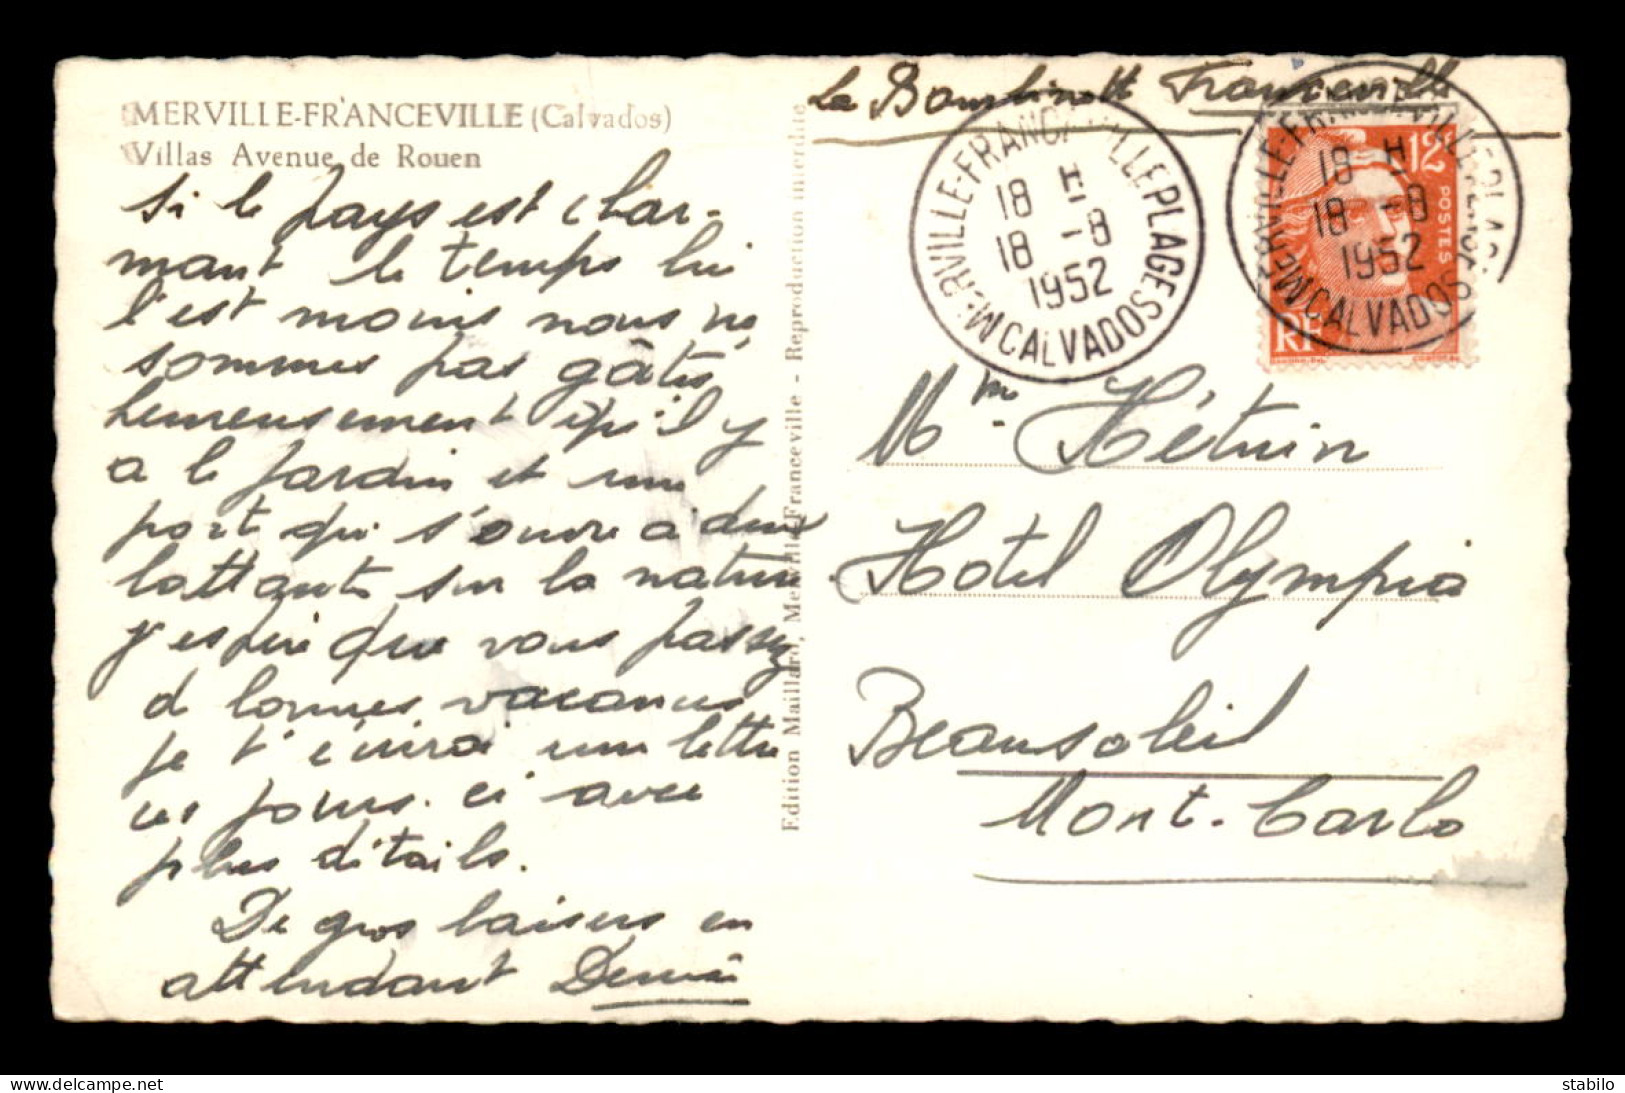 MERVILLE-FRANCEVILLE (Calvados)
Villas Avenue de Rouen
Si le pays est char-
mant le temps lui
l'est moins nous ne
sommes pas gâtés
heureusement qu'il y
a le jardin et une
port qui s'ouvre à deux
battants sur la nature.
J'espère que vous passez
de bonnes vacances
je t'écrirai une lettre
ces jours-ci avec
plus détails.
De gros baisers en
attendant Denise
Edition Maillard, Merville-Franceville - Reproduction interdite
La Bombinette Franceville
MERVILLE-FRANCEVILLE PLAGE
18 H
18 -8
1952
CALVADOS
MERVILLE-FRANCEVILLE PLAGE
18 H
18 -8
1952
CALVADOS
12F
POSTES
RF
Mme Hétuin
Hotel Olympia
Beausoleil
Mont-Carlo
delcampe.net
stabilo